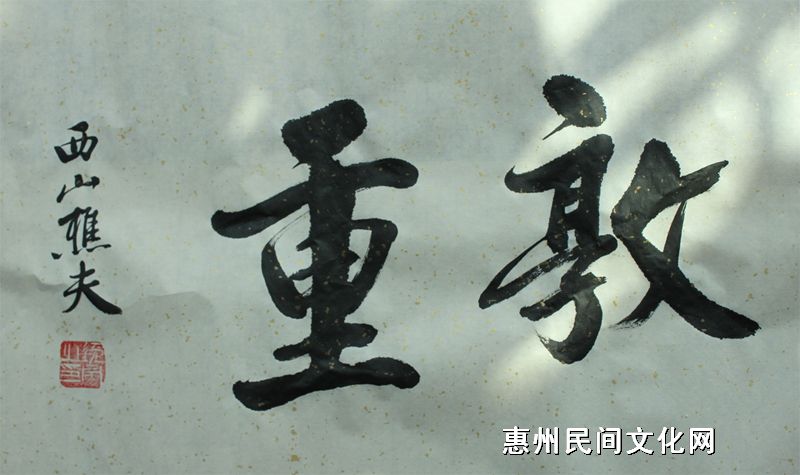 敦重
西山樵夫
惠州民间文化网